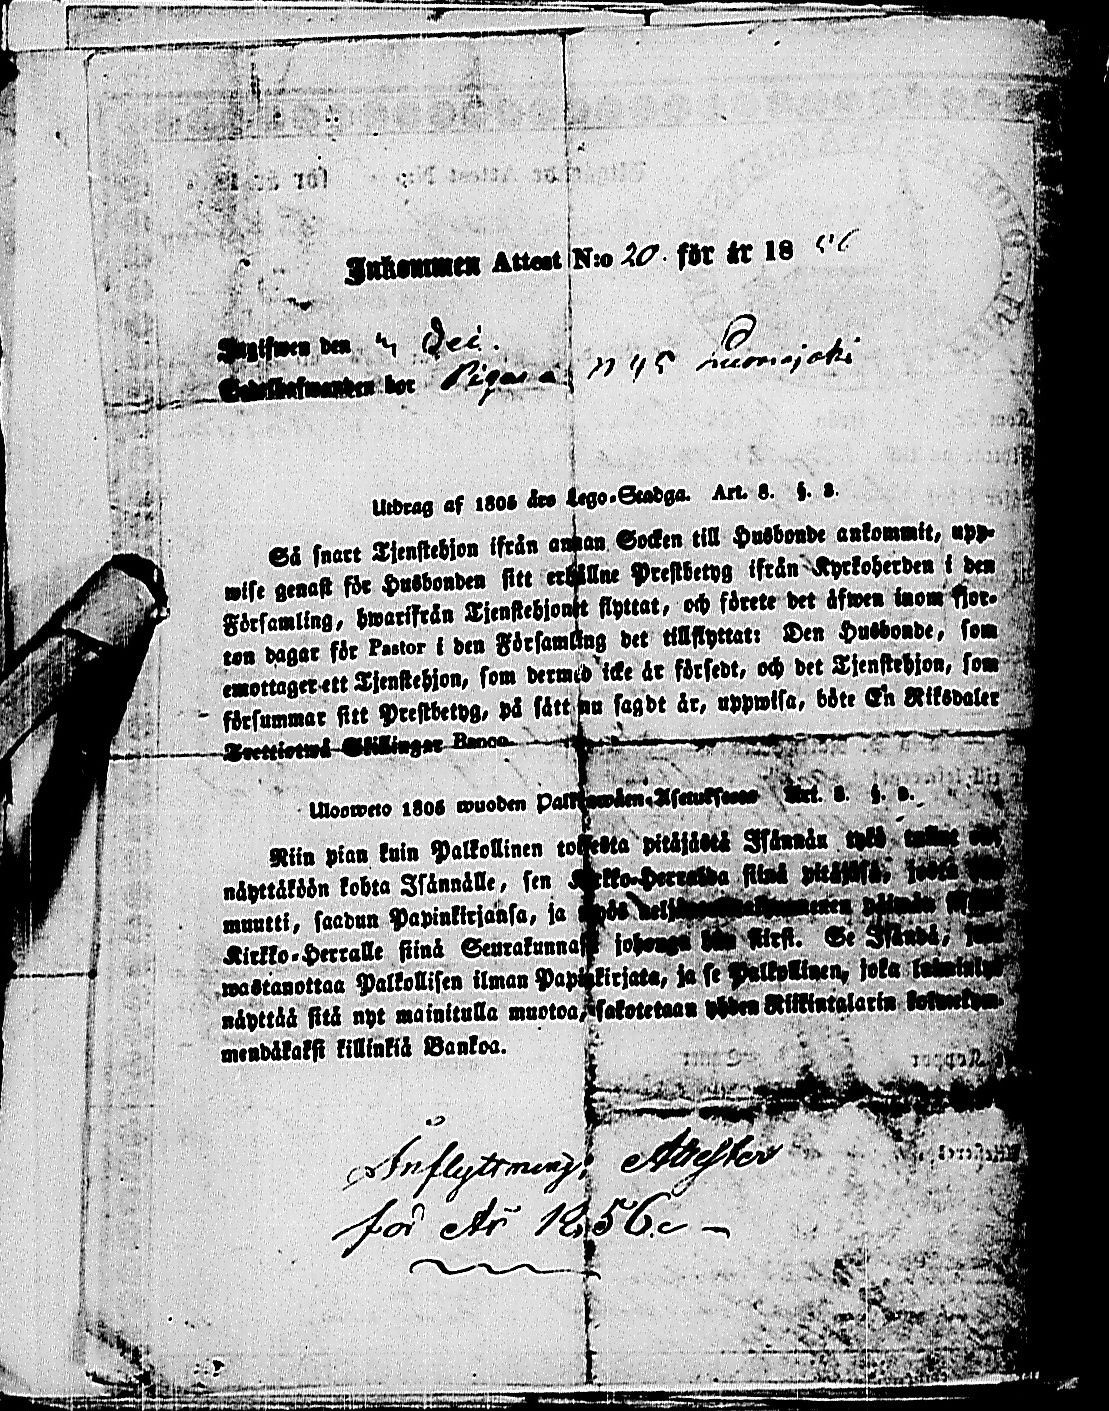 Inkommen Attest N:o 20. för år 18 56
Ingifwen den Dec.
Innehafwanden bor Pigan N 45 Lumijoki
Utdrag af 1805 års Lego-Stadga. Art. 8. §. 8.
Så snart Tjenstehjon ifrån annan Socken till Husbonde ankommit, upp-
wise genast för Husbonden sitt erhållne Prestbetyg ifrån Kyrkoherden i den
Församling, hwarifrån Tjenstehjonet flyttat, och förete det äfwen inom fjor-
ton dagar för Pastor i den Församling det tillflyttat: Den Husbonde, som
emottager ett Tjenstehjon, som dermed icke är försedt, och det Tjenstehjon, som
försummar sitt Prestbetyg, på sätt nu sagdt är, uppwisa, böte En Riksdaler
Trettiotwå Skillingar Banco.
Ulosweto 1805 wuoden Palkkawäen-Asetuksesta Art. 8. §. 8.
Niin pian kuin Palkollinen toisesta pitäjästä Isännän tykö tullut on,
näyttäköön kohta Isännälle, sen Kirkko-Herralda siinä pitäjäsä, josta hän
muutti, saadun Papinkirjansa, ja myös neljäntoistakymmenen päiwän sisällä
Kirkko-Herralle siinä Seurakunnasa johonga hän siirsi. Se Isändä, joka
wastanottaa Palkollisen ilman Papinkirjata, ja se Palkollinen, joka
näyttää sitä nyt mainitulla muotoa, sakotetaan yhden Riikintalarin kolmekym-
mendäkaksi killinkiä Bankoa.
Inflyttnings Attester
för År 1856.